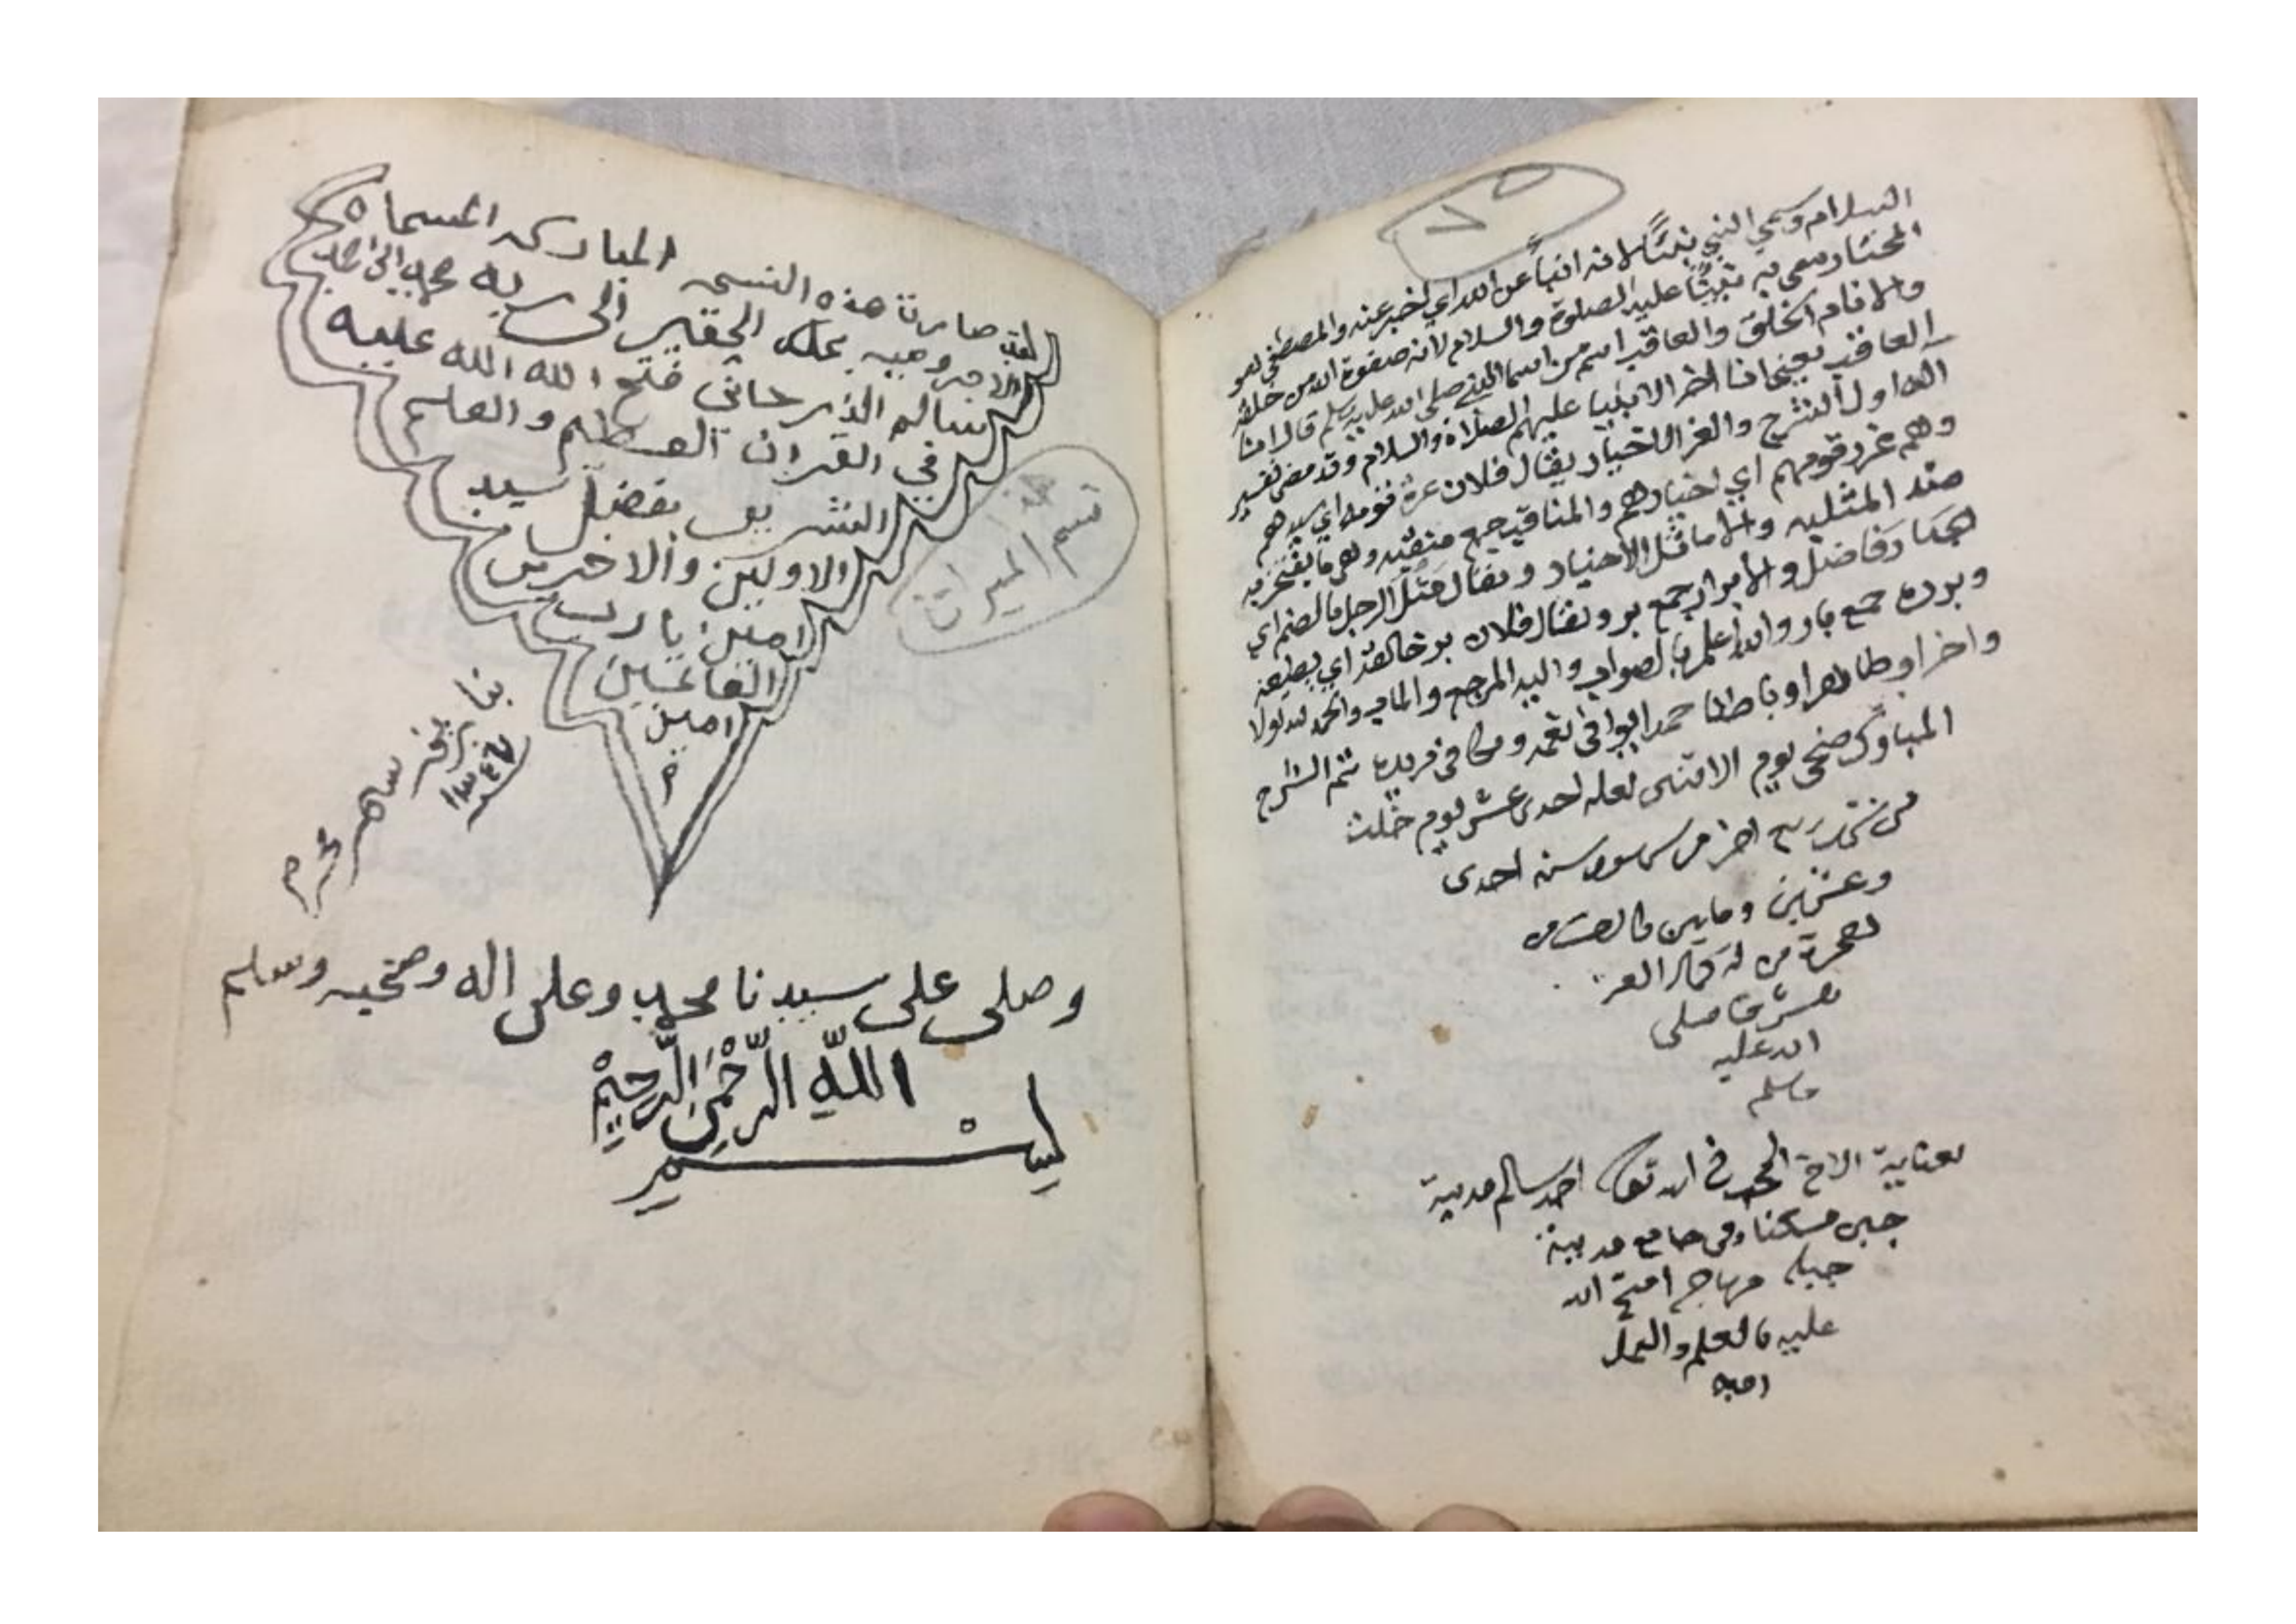 السلام وسمي النبي نبيًّا لانه انبأ عن الله اي اخبر عنه والمصطفى هو
المختار سمي به نبينا عليه الصلوة والسلام لانه صفوة الله من خلقه
والانام الخلق والعاقب اسم من اسما النبي صلى الله عليه وسلم قال انا
العاقب يعني انا اخر الانبيا عليهم الصلاة والسلام وقد مضى تفسير
الال اول الشرح والغر الاخيار يقال فلان غرة قومه اي سيدهم
وهم غرر قومهم اي اخيارهم والمناقب جمع منقبه وهي ما يفتخر به
ضد المثلبه والاماثل الاخيار ويقال مثل الرجل بالضم اي
صار فاضل والابرار جمع بر ويقال فلان بر خالقه اي يطيعه
وبرره جمع بار والله اعلم بالصواب واليه المرجع والماب والحمد لله اولا
واخرا وظاهرا وباطنا حمدا يوافي نعمه ويكافي مزيده تم الشرح
المبارك ضحى يوم الاثنين لعله احدى عشر يوم خلت
من شهر ربيع اخر من سنة احدى
وعشرين ومايتين
هجرة من له العز
والشرف صلى
الله عليه
وسلم
بعناية الاخ المحب في الله تعالى احمد سالم مدينة
جبله مسكنا وفي جامع مدينة
جبله مهاجر افتح الله
عليه بالعلم والعمل
امين
لقد صارت هذه النسخه المباركه المسماه
بملك الحقير الى ربه
سالم فتح الله الله عليه
في القران العظيم والعلم
الشريف بفضل سيد
الاولين والاخرين
امين يا رب
العالمين
امين
م
قسم الميراث
بتاريخ شهر محرم
وصلى على سيدنا محمد وعلى اله وصحبه وسلم
بِسْمِ اللَّهِ الرَّحْمَنِ الرَّحِيْمِ